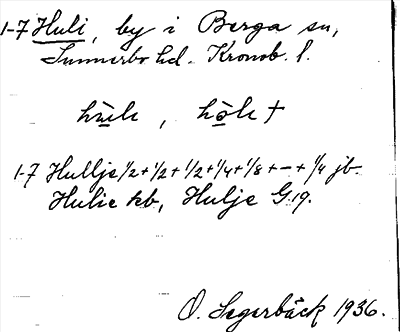 1-7 Huli, by i Berga sn,
Sunnerbo hd. Kronob. l.
1-7 Hullje 1/2+1/2+1/2+1/4+1/8+-+1/4 jb.
Hulie kb, Hulje G.19.
O. Segerbäck 1936.